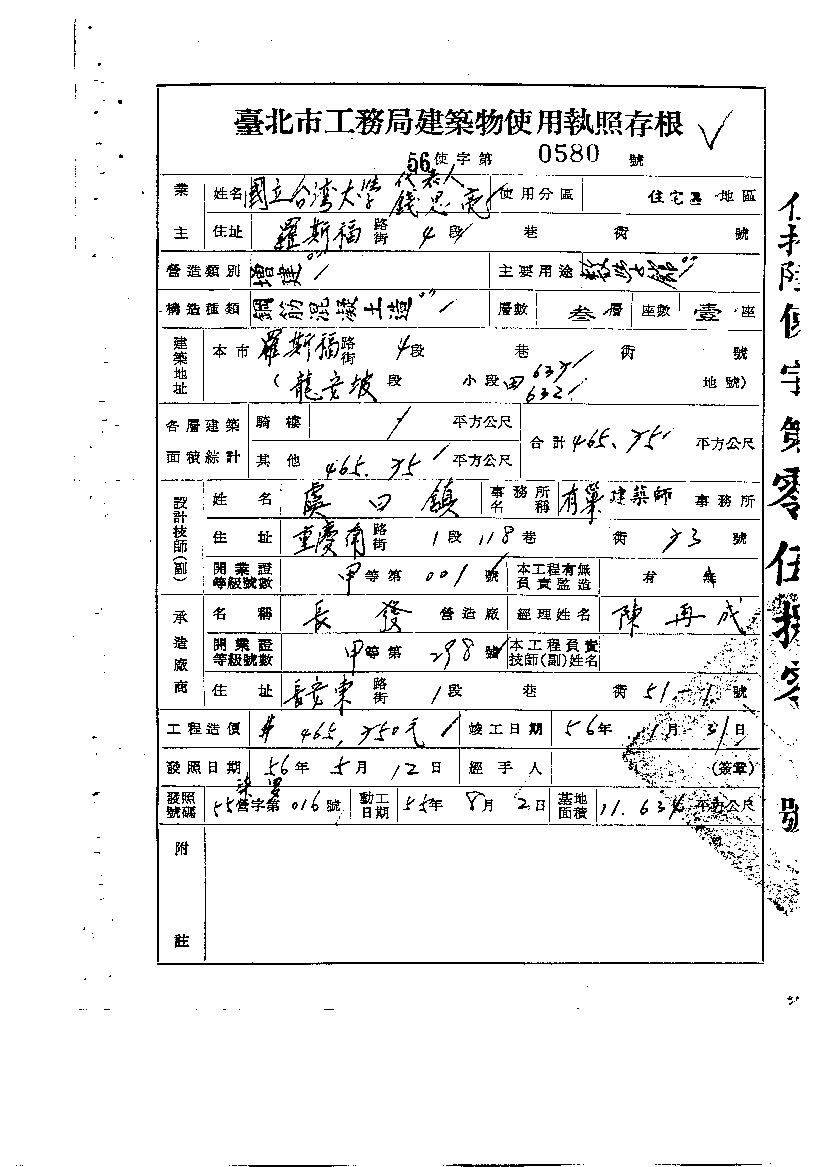 臺北市工務局建築物使用執照存根
56使字第 0580 號
業主 姓名 國立台湾大學 代表人 錢思亮 使用分區 住宅區 地區
住址 羅斯福 路街 4段 巷 衖 號
營造類別 增建 主要用途
構造種類 鋼筋混凝土造 層數 叁層 座數 壹座
建築地址 本市 羅斯福 路街 4段 巷 衖 號
(龍安坡 段 小段 田 632 地號)
各層建築面積綜計 騎樓 / 平方公尺 合計 平方公尺
其他 平方公尺
設計技師(副) 姓名 虞曰鎮 事務所名稱 有巢建築師 事務所
住址 重慶南 路街 1段 118巷 衖 號
開業證等級號數 甲等第001號 本工程有無負責監造 有
承造廠商 名稱 長發 營造廠 經理姓名 陳再成
開業證等級號數 甲等第298號 本工程負責技師(副)姓名
住址 長安東 路街 1段 巷 衖 51-1號
工程造價 竣工日期 56年1月31日
發照日期 56年5月12日 經手人 (簽章)
發照號碼 55營字第016號 動工日期 55年8月2日 基地面積 平方公尺
附註
使字第零伍捌零號